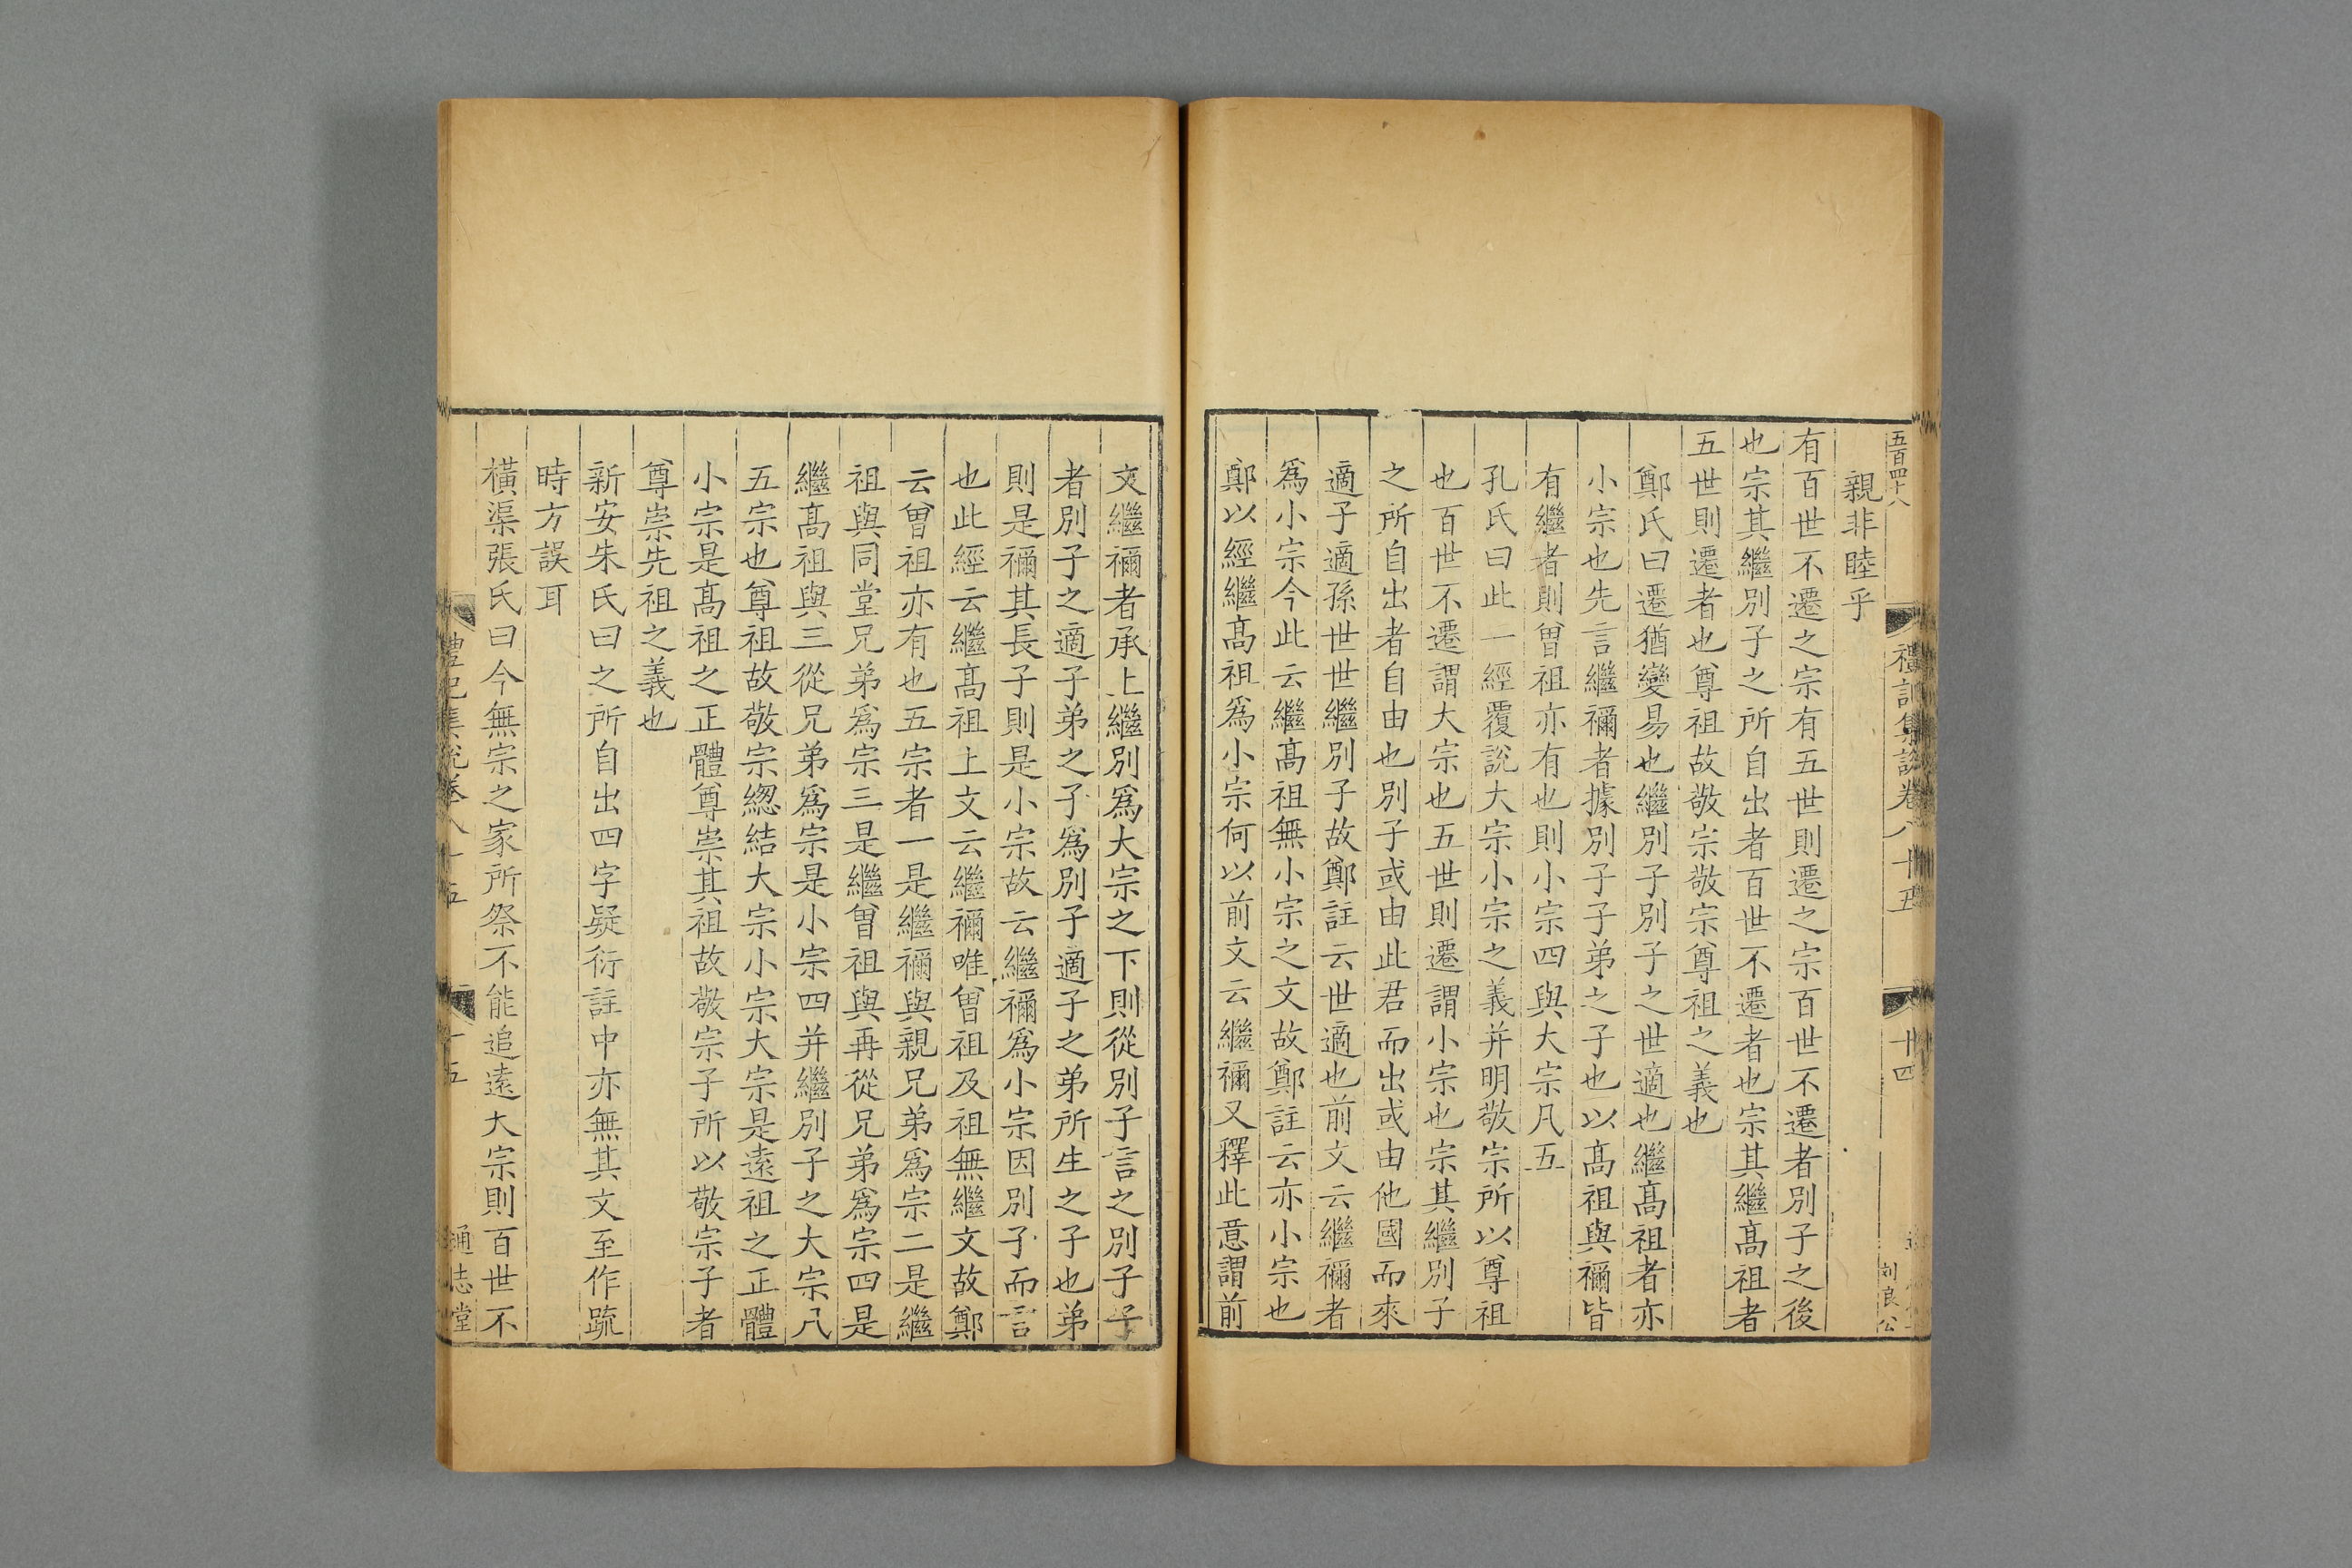 五百四十八
禮記集說卷八十五
十四
刘良公
親非睦乎
有百世不遷之宗有五世則遷之宗百世不遷者別子之後
也宗其繼別子之所自出者百世不遷者也宗其繼髙祖者
五世則遷者也尊祖故敬宗敬宗尊祖之義也
鄭氏曰遷猶變易也繼別子別子之世適也繼髙祖者亦
小宗也先言繼禰者據別子子弟之子也以髙祖與禰皆
有繼者則曾祖亦有也則小宗四與大宗凡五
孔氏曰此一經覆説大宗小宗之義并明敬宗所以尊祖
也百世不遷謂大宗也五世則遷謂小宗也宗其繼別子
之所自出者自由也別子或由此君而出或由他國而來
適子適孫世世繼別子故鄭註云世適也前文云繼禰者
爲小宗今此云繼髙祖無小宗之文故鄭註云亦小宗也
鄭以經繼髙祖爲小宗何以前文云繼禰又釋此意謂前
文繼禰者承上繼別爲大宗之下則從別子言之別子子
者別子之適子弟之子爲別子適子之弟所生之子也弟
則是禰其長子則是小宗故云繼禰爲小宗因別子而言
也此經云繼髙祖上文云繼禰唯曾祖及祖無繼文故鄭
云曾祖亦有也五宗者一是繼禰與親兄弟爲宗二是繼
祖與同堂兄弟爲宗三是繼曾祖與再從兄弟爲宗四是
繼髙祖與三從兄弟爲宗是小宗四并繼別子之大宗凡
五宗也尊祖故敬宗緫結大宗小宗大宗是遠祖之正體
小宗是髙祖之正體尊崇其祖故敬宗子所以敬宗子者
尊崇先祖之義也
新安朱氏曰之所自出四字疑衍註中亦無其文至作䟽
時方誤耳
橫渠張氏曰今無宗之家所祭不能追遠大宗則百世不
禮記集說卷八十五
十五
通志堂